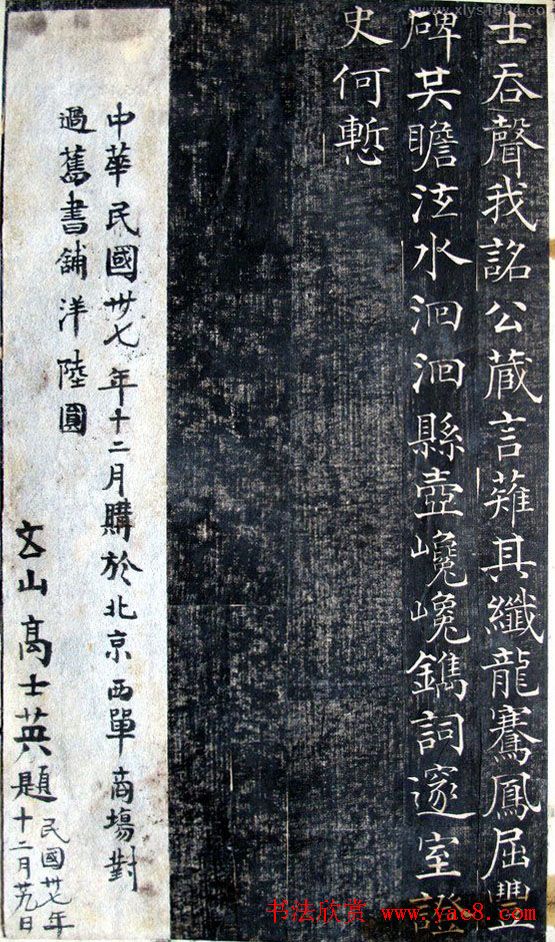 士吞聲我詺公蔵言薙其纖龍騫鳳屈豐
碑共瞻泫水洄洄縣壺巉巉鐫詞邃室證
史何慙
中華民國卅七年十二月購於北京西單商塲對
過舊書舖洋陸圓
玄山高士英題
民國卅七年
十二月廿九日
www.xlys1904.com
书法欣赏 www.yac8.com